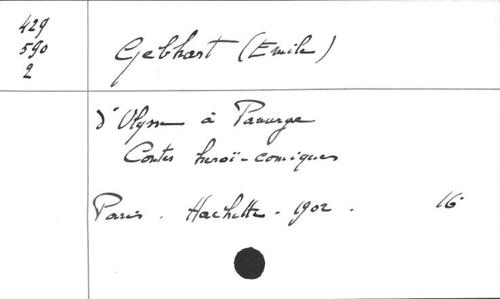 429
590
2
Gebhart (Emile)
d'Ulysse à Panurge
Contes heroï-comiques
Paris. Hachette. 1902. 16°